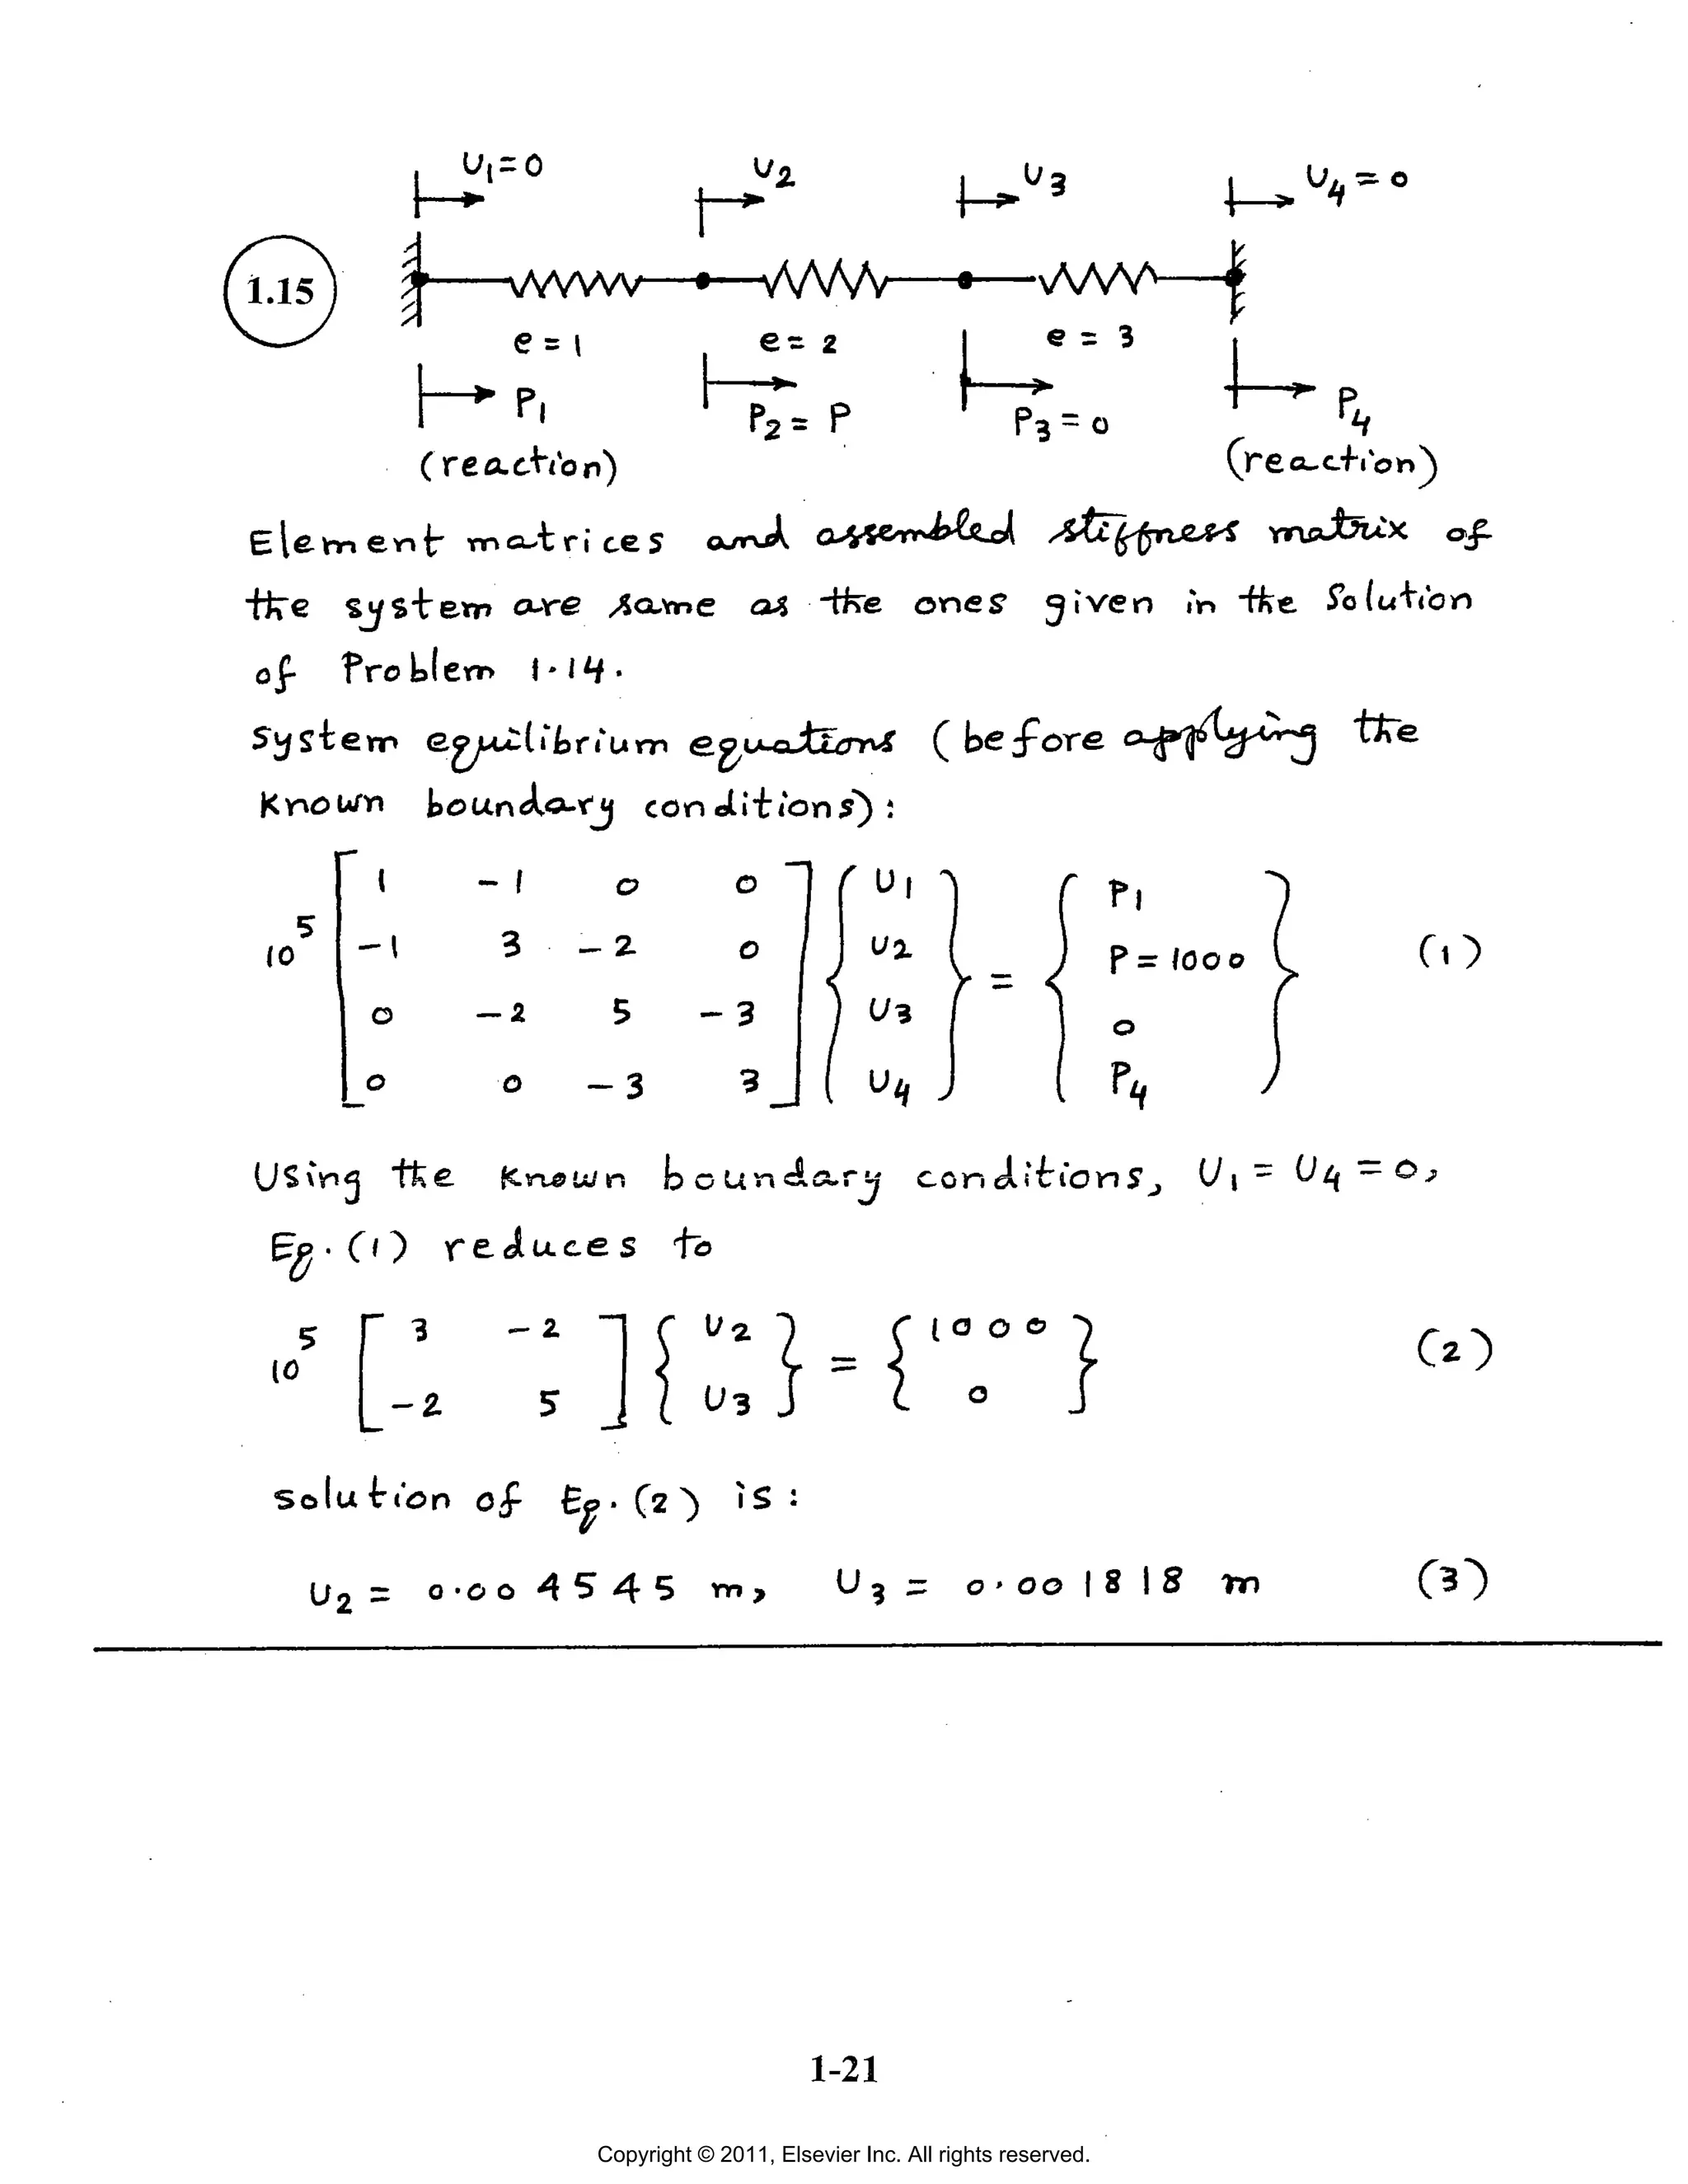 U1 = 0 U2 U3 U4 = 0
1.15
e = 1 e = 2 e = 3
P1 P2 = P P3 = 0 P4
(reaction) (reaction)
Element matrices and assembled stiffness matrix of
the system are same as the ones given in the Solution
of Problem 1.14.
System equilibrium equations (before applying the
known boundary conditions):
1 -1 0 0 U1 P1
10^5 -1 3 -2 0 U2 = P = 1000 (1)
0 -2 5 -3 U3 0
0 0 -3 3 U4 P4
Using the known boundary conditions, U1 = U4 = 0,
Eq. (1) reduces to
10^5 [ 3 -2 ] { U2 } = { 1000 } (2)
[ -2 5 ] { U3 } { 0 }
solution of Eq. (2) is:
U2 = 0.004545 m, U3 = 0.001818 m (3)
1-21
Copyright © 2011, Elsevier Inc. All rights reserved.